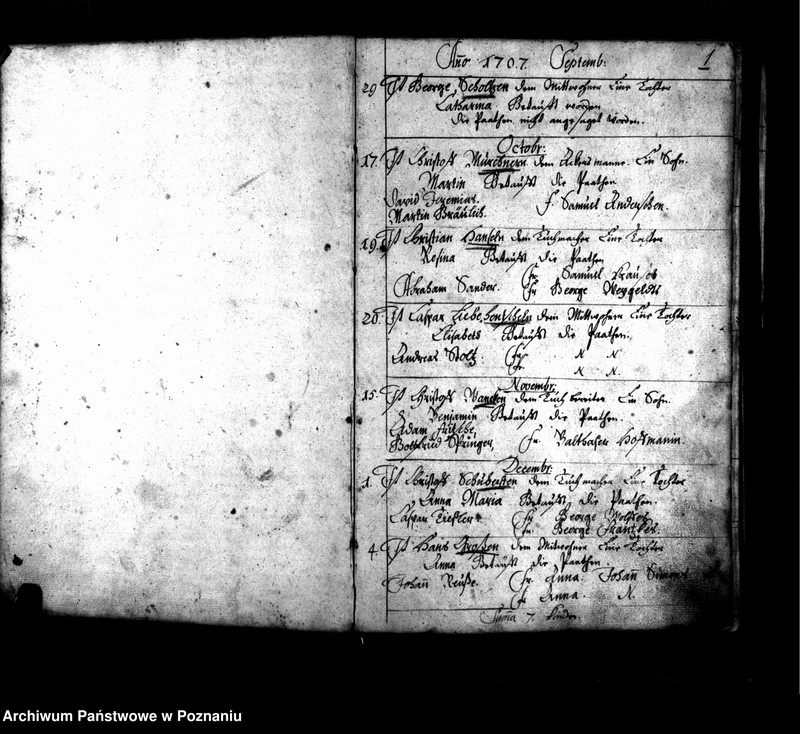 Año 1707. Septemb: 1
29 Ist George Scholtzen dem Mittwohner Eine Tochter
Catharina Getaufft worden
die Paathen nicht angesaget worden.
Octobr:
17. Ist Christoff dem Ackersmanne Ein Sohn.
Martin Getaufft die Paathen
David Jeremias. F. Samuel
Martin Bräulich.
19. Ist Christian Hanseln dem Tuchmacher Eine Tochter
Rosina Getaufft die Paathen
Fr. Samuel
Abraham Sander. Fr. George Weygeldts
26. Ist Caspar dem Mittwohner Eine Tochter
Elisabeth Getaufft die Paathen.
Andreas Stoltz. Fr. N. N.
Fr. N. N.
Novembr:
15. Ist Christoff dem Tuchbereiter Ein Sohn.
Benjamin Getaufft die Paathen.
Adam
Gottfried Springer, Fr. Balthasar Hoffmann.
Decembr:
1. Ist Christoff Schuberten dem Tuchmacher Eine Tochter
Anna Maria Getaufft die Paathen.
Caspar Fr. George
Fr. George
4. Ist Hans Großen dem Mittwohner Eine Tochter
Anna Getaufft die Paathen
Johañ Fr. Anna. Johañ
Fr. Anna. N.
Suma 7. Kinder
Archiwum Państwowe w Poznaniu